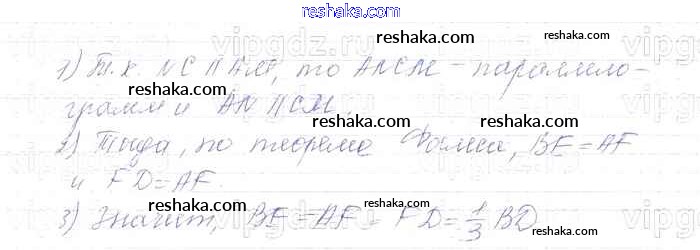 reshaka.com
1) Т.к. NC || AM, то ANCM – параллело-
грамм и AN || CM
2) Тогда, по теореме Фалеса, BE = AF
и FD = AF.
3) Значит, BE = AF = FD = 1/3 BD
reshaka.com
reshaka.com
reshaka.com
reshaka.com
reshaka.com
reshaka.com
reshaka.com
reshaka.com